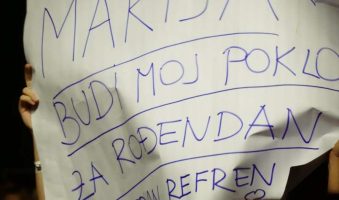 BUDI MOJ POKLO
ZA ROĐENDAN
REFREN